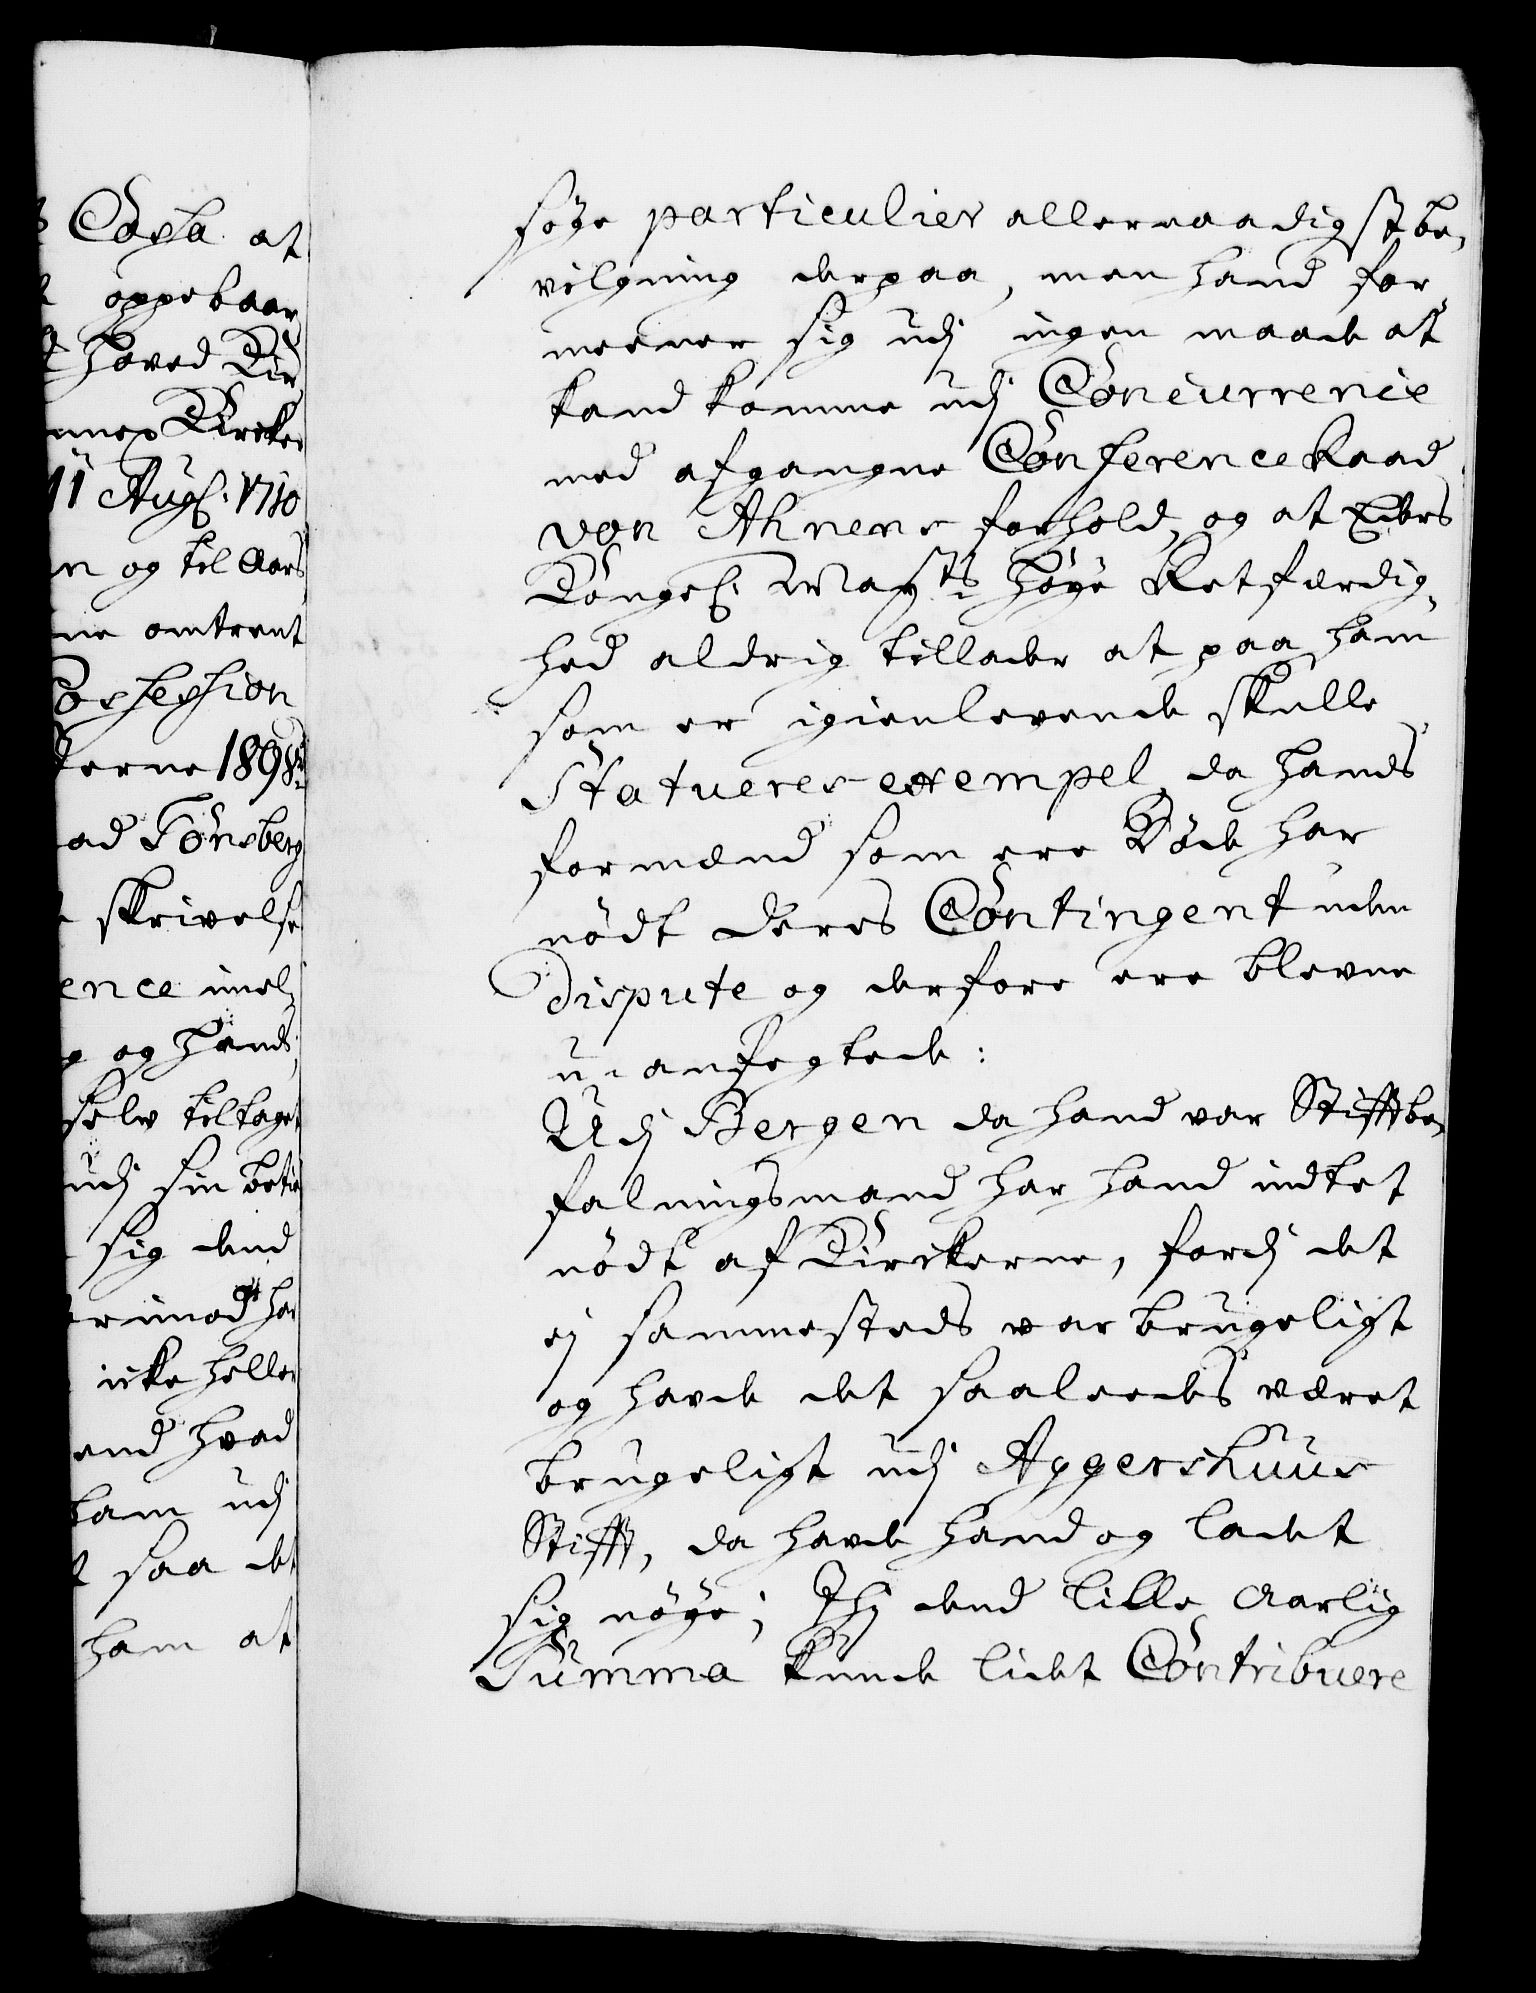 Cassa at
oppebaar
Hoved Kir
nnex Kircker
11 Aug. 1710
n og til Aars
ne omtrent
Possession
erne 1898
ad Tönsberg
skrivelse
ence imel
og hands
selv tiltaget
udj sin betie
sig dend
erimod har
icke heller
end hvad
kam udj
saa det
ham at
söge particulier allernaadigst be„
vilgning derpaa, men hand for„
meener sig udj ingen maade at
kand komme udj Concurrence
med afgangne Conference Raad
von Ahnens forhold, og at Eders
Kongel. Mayts. höye Retfærdig„
hed aldrig tillader at paa ham
som er igienlevende skulle
Statueres exempel, da hands
formænd som ere Döde har
nödt deres Contingent uden
Dispute og derfore ere blevne
u-anfegtede:
Udj Bergen da hand var Stifftbe„
falningsmand har hand indtet
nödt af Kirckerne, fordj det
ej sammesteds var brugeligt
og havde det saaleedes været
brugeligt udj Aggershuus
Stifft, da havde hand og ladet
sig nöye; Thj dend lille Aarlig
Summa kunde lidet Contribuere